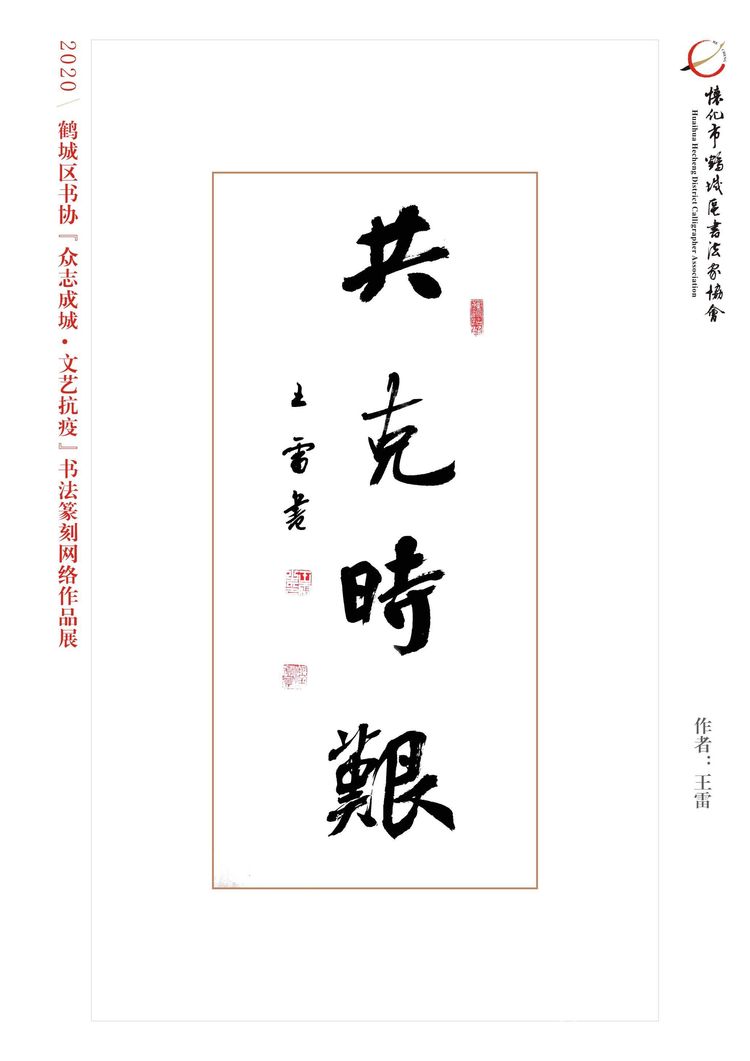 2020 / 鹤城区书协『众志成城·文艺抗疫』书法篆刻网络作品展
共克時艱
王雷書
懷化市鶴城區書法家協會
Huaihua Hecheng District Calligrapher Association
作者：王雷